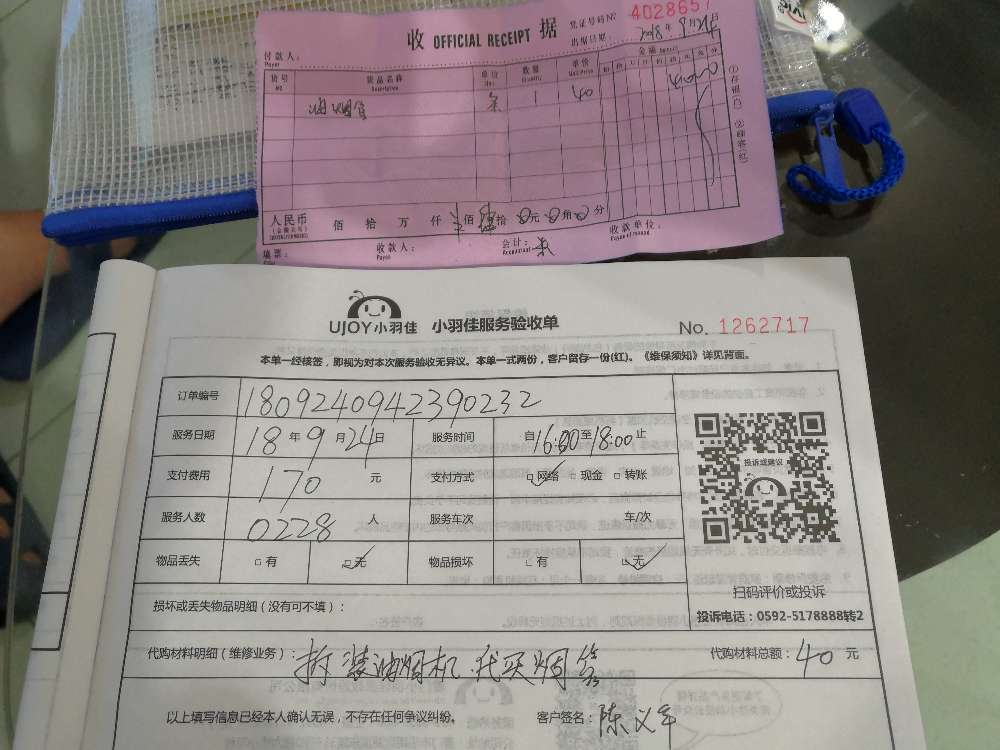 收 OFFICIAL RECEIPT 据
凭证号码 No 4028657
付款人：
Payer
出据日期： 2018年9月24日
货号 货品名称 单位 数量 单价 金额
NO Description Quantity Unit Price
油烟管 条 1 40 4000
①存根(白) ②顾客(红)
人民币 佰 拾 万 仟 佰肆拾0元0角0分
填票： 收款人： 会计： 收款单位：
Payee Accountant
UJOY小羽佳 小羽佳服务验收单 No. 1262717
本单一经核签，即视为对本次服务验收无异议。本单一式两份，客户留存一份(红)。《维保须知》详见背面。
订单编号 1809240942390232
服务日期 18年9月24日 服务时间 自16:00至18:00止
支付费用 170 元 支付方式 网络 现金 转账
服务人数 0228 人 服务车次 车/次
物品丢失 有 无 物品损坏 有 无
投诉或建议
扫码评价或投诉
投诉电话：0592-5178888转2
损坏或丢失物品明细（没有可不填）：
代购材料明细（维修业务）： 拆装油烟机 代买烟管 代购材料总额： 40 元
以上填写信息已经本人确认无误，不存在任何争议纠纷。 客户签名：陈义